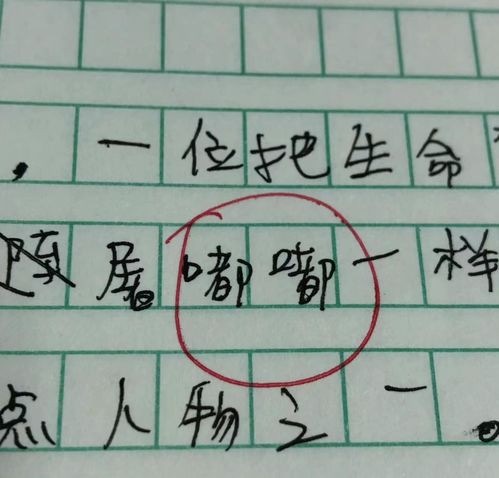 ，一位把生命
屠嘟嘟一样
点人物之一。